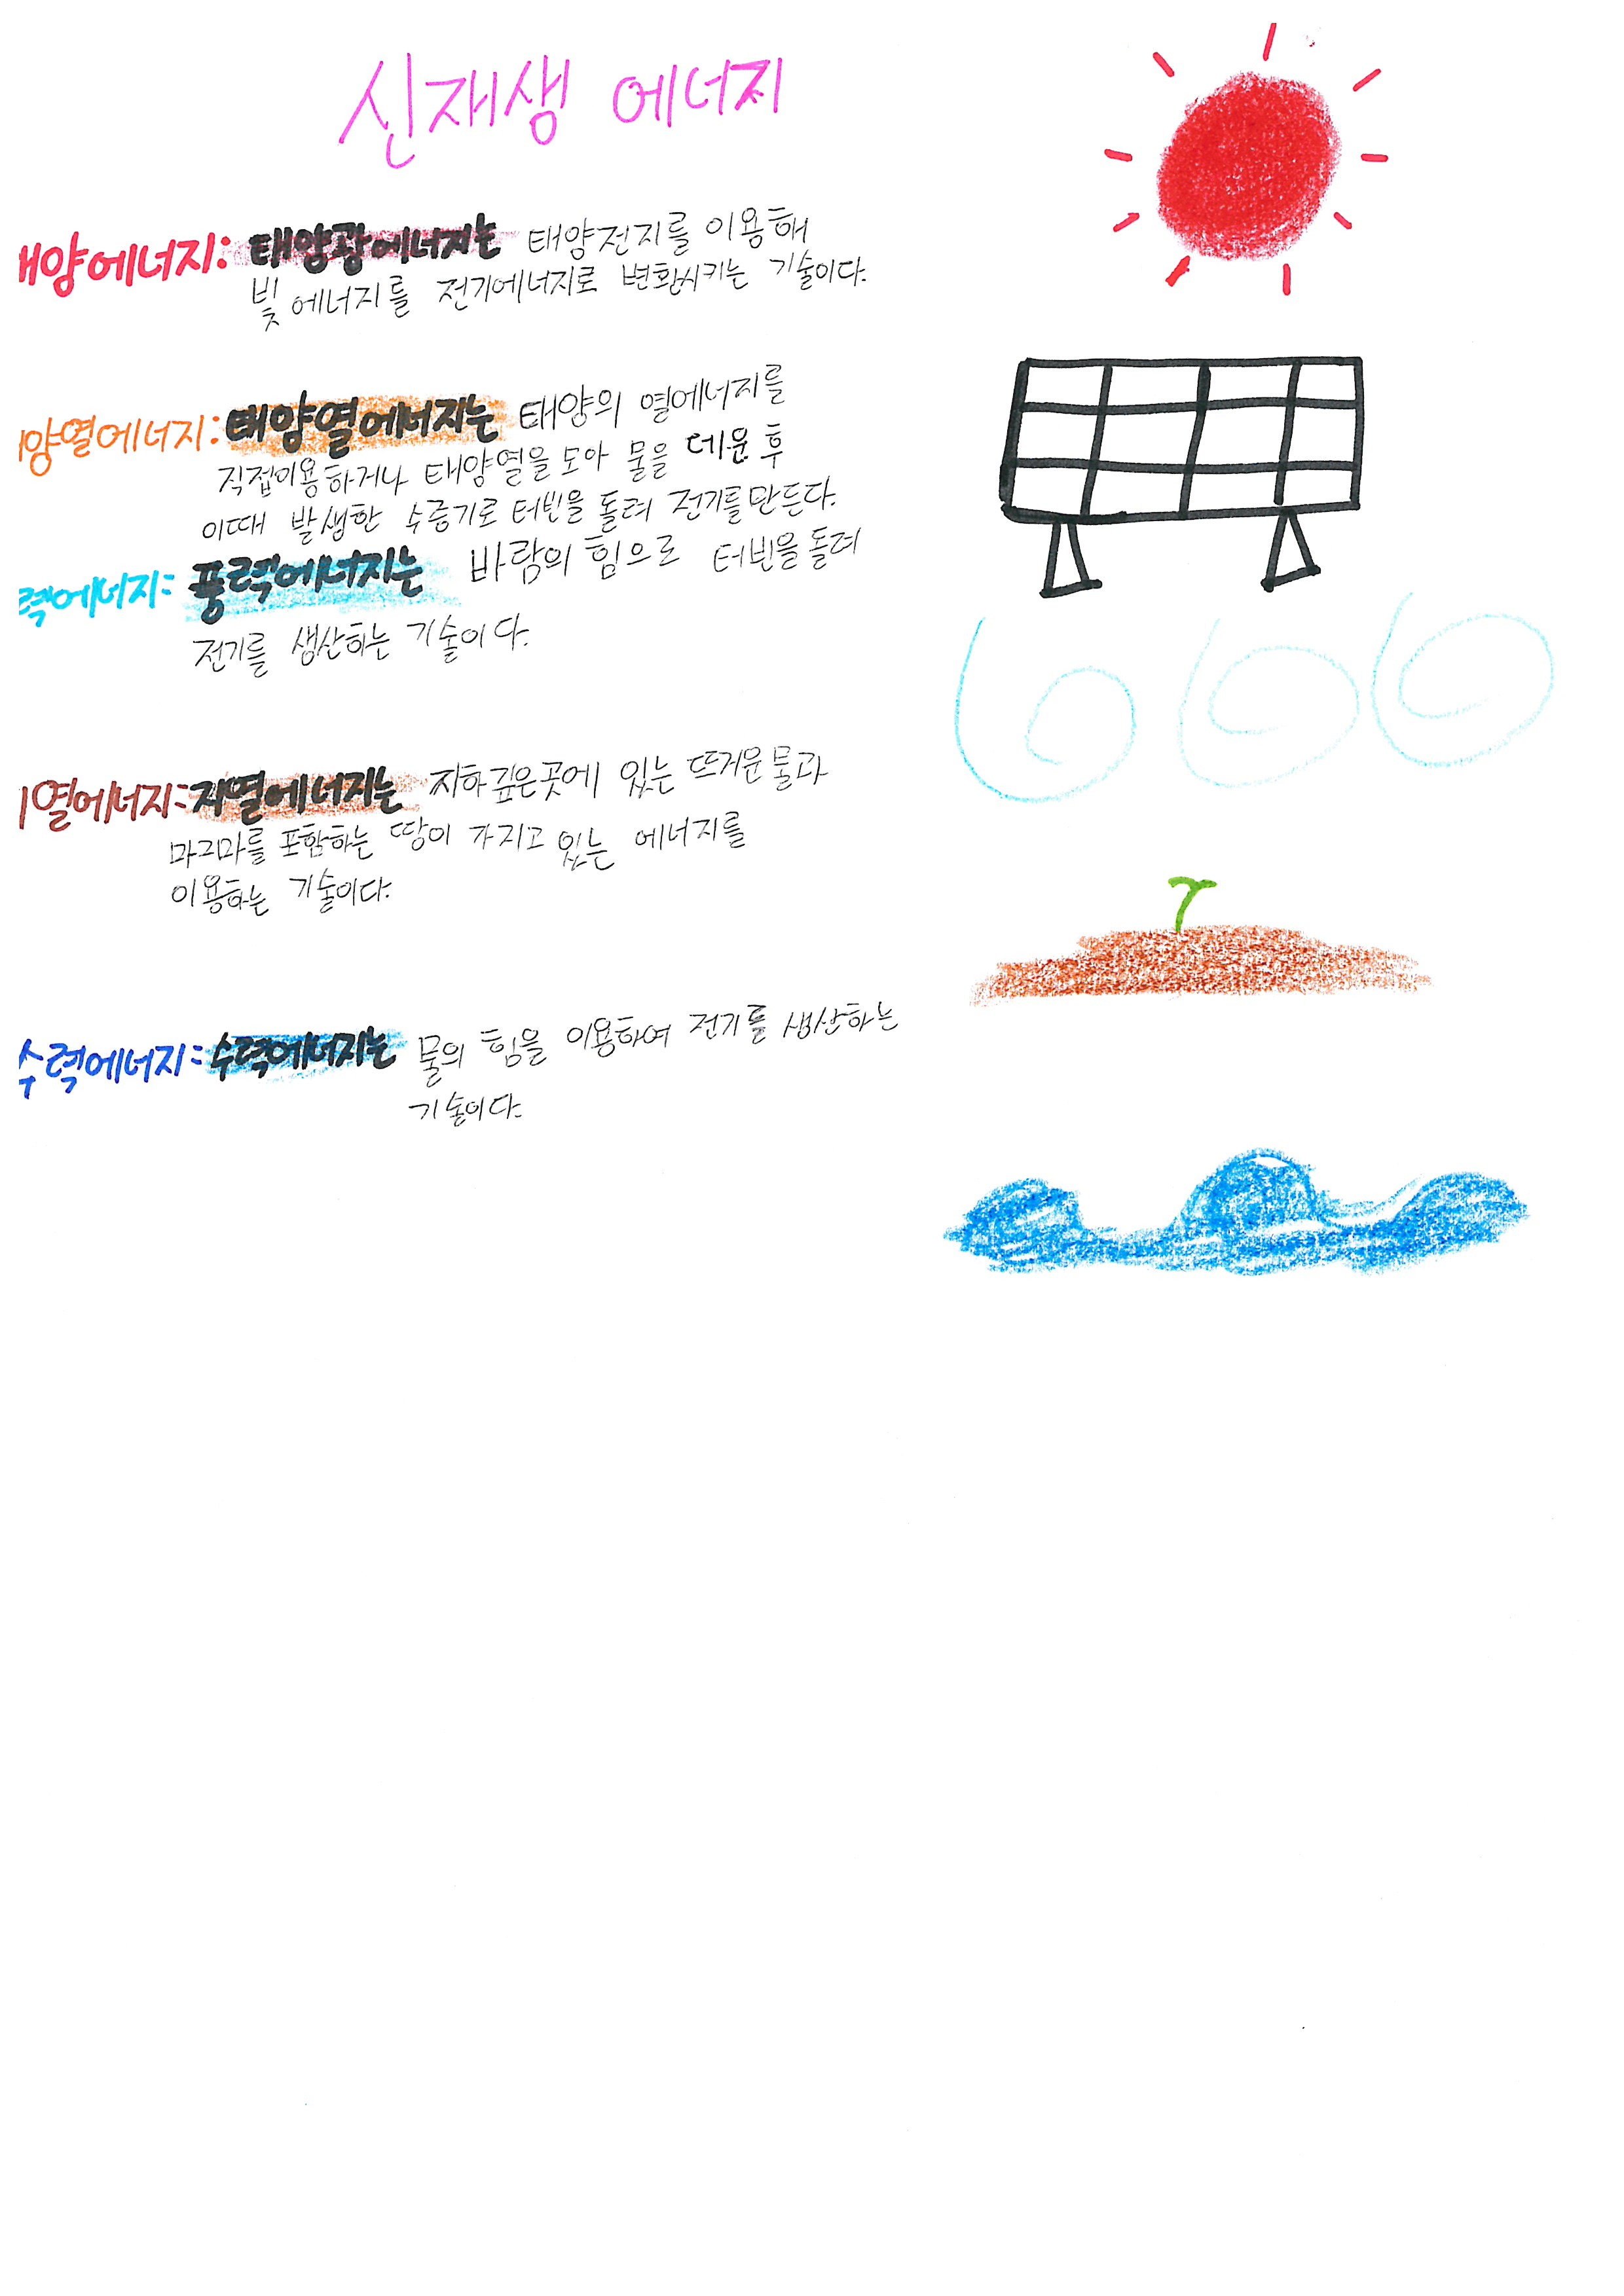 신재생 에너지
양에너지: 태양광에너지는 태양전지를 이용해
빛에너지를 전기에너지로 변환시키는 기술이다.
양열에너지: 태양열에너지는 태양의 열에너지를
직접이용하거나 태양열을 모아 물을 데운 후
이때 발생한 수증기로 터빈을 돌려 전기를만든다.
력에너지: 풍력에너지는 바람의 힘으로 터빈을돌려
전기를 생산하는 기술이다.
열에너지: 지열에너지는 지하깊은곳에 있는 뜨거운물과
마그마를 포함하는 땅이 가지고 있는 에너지를
이용하는 기술이다.
수력에너지: 수력에너지는 물의 힘을 이용하여 전기를 생산하는
기술이다.